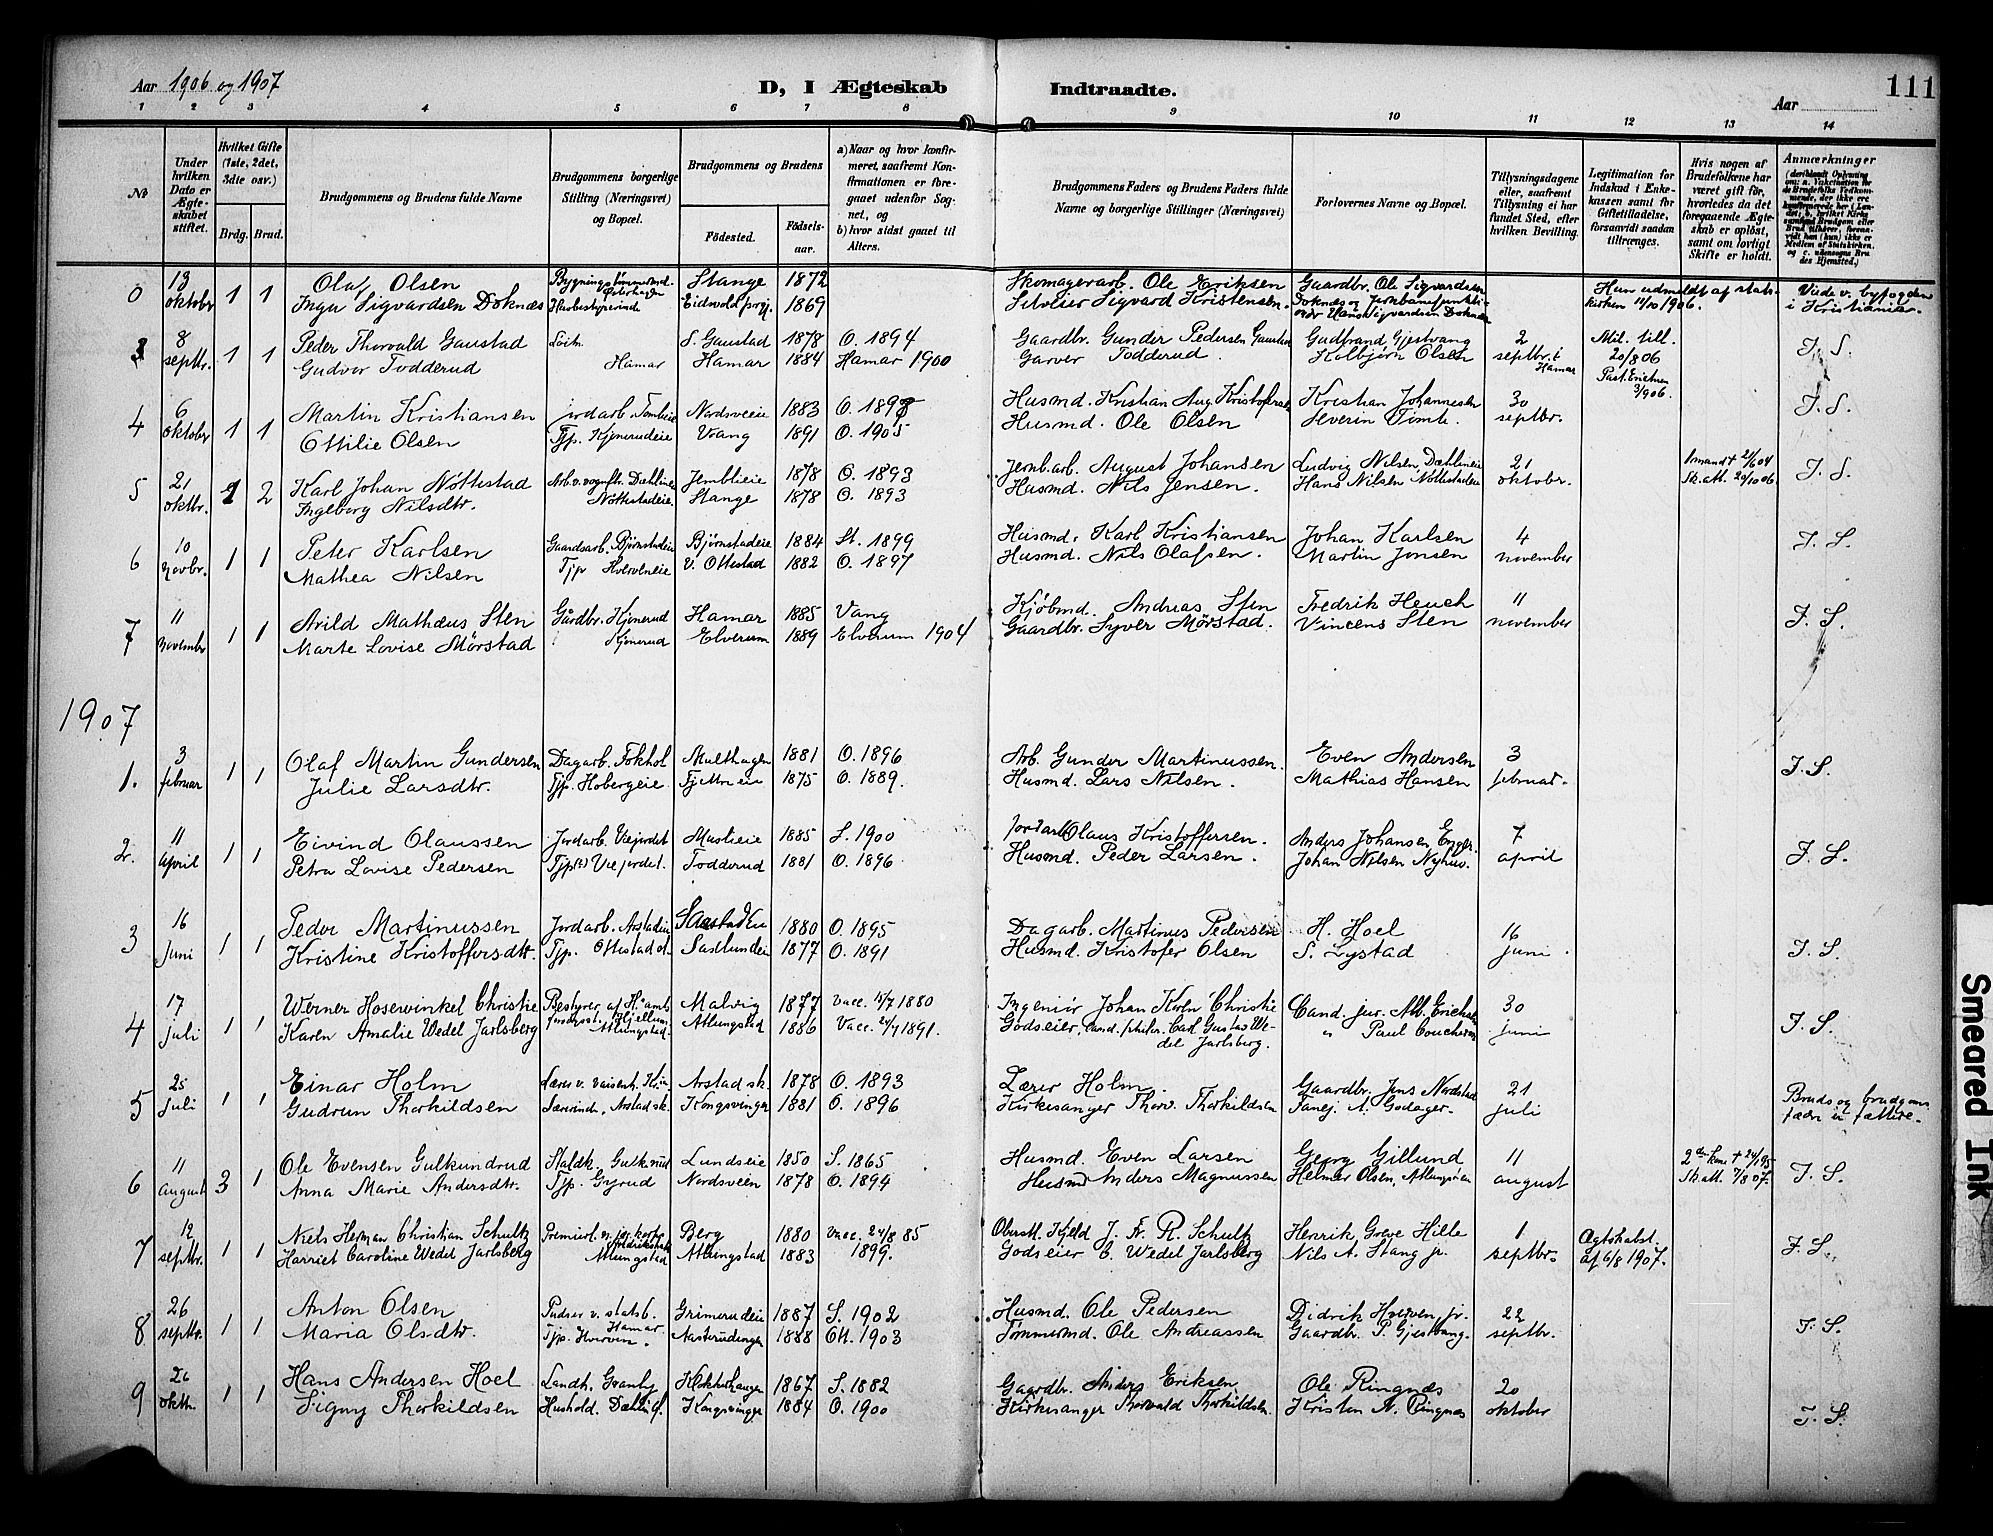 Aar 1906 og 1907
D, I Ægteskab Indtraadte.
Aar
111
1 2 3 4 5 6 7 8 9 10 11 12 13 14
№
Under hvilken Dato er Ægteskabet stiftet.
Hvilket Gifte (1ste, 2det, 3die osv.)
Brdg. Brud.
Brudgommens og Brudens fulde Navne
Brudgommens borgerlige Stilling (Næringsvei) og Bopæl.
Brudgommens og Brudens
Fødested.
Fødselsaar.
a) Naar og hvor konfirmeret, saafremt Konfirmationen er foregaaet udenfor Sognet, og
b) hvor sidst gaaet til Alters.
Brudgommens Faders og Brudens Faders fulde Navne og borgerlige Stillinger (Næringsvei)
Forlovernes Navne og Bopæl.
Tillysningsdagene eller, saafremt Tillysning ei har fundet Sted, efter hvilken Bevilling.
Legitimation for Indskud i Enkekassen samt for Giftetilladelse, forsaavidt saadan tiltrænges.
Hvis nogen af Brudefolkene har været gift før, hvorledes da det foregaaende Ægteskab er opløst, samt om lovligt Skifte er holdt.
Anmærkninger
0 13 oktober 1 1 Olaf Olsen Stange 1872 Skomagerarb. Ole Eriksen Gaardbr. Ole Sigvardsen Hun udmeldt af statskirken 1906. Viede v. byfogden
Inga Sigvardsen Doknæs Eidsvold prgj. 1869 Selveier Sigvard Kristensen. Doknæs og Hans Sigvardsen Doknæs i Kristiania.
3 8 septbr. 1 1 Peder Thorvald Gaustad S. Gaustad 1878 O. 1894 Gaardbr. Gunder Pedersen Gaustad Gudbrand Gjestvang 2 Mil. till. J. S.
Gudvor Todderud Hamar Hamar 1884 Hamar 1900 Garver Todderud. Kolbjørn Olsen septbr. i Hamar 20/8 06
Past. Erichsen 3/9 06.
4 6 oktober 1 1 Martin Kristiansen jordarb. Tomleie Nordsveeie 1883 Husmd. Kristian Aug. Kristofersen Kristian Johannesen 30 J. S.
Ottilie Olsen Tjp. Kjonerudeie Vang 1891 O. 1905 Husmd. Ole Olsen Severin Tomte. septbr.
5 21 oktbr. 1 2 Karl Johan Nøttestad Jemblieie 1878 O. 1893 Jernb.arb. August Johansen Ludvig Nilsen, Dæhlineie 21 1 mand + 2/6 04 J. S.
Ingeborg Nilsdtr. Nøttestadeie. Stange 1878 O. 1893 Husmd. Nils Jensen. Hans Nilsen Nøttestadeie oktobr. Sk.att. 20/10 06.
6 10 novbr. 1 1 Peter Karlsen Gaardsarb. Bjørnstadeie Bjørnstadeie 1884 St. 1899 Husmd. Karl Kristiansen Johan Karlsen 4 J. S.
Mathea Nilsen Tjp Hverveneie V. Ottestad 1882 O. 1897 Husmd. Nils Olafsen. Martin Jonsen november
7 11 november 1 1 Arild Mathæus Sten Gårdbr. Kjonerud Hamar 1885 Vang Kjøbmd. Andreas Sten Fredrik Heuch 11 J. S.
Marte Lovise Mørstad Kjonerud Elverum 1889 Elverum 1904 Gaardbr. Syver Mørstad. Vincens Sten november
1907
1. 3 februar 1 1 Olaf Martin Gundersen Dagarb. Fokhol Multhagen 1881 O. 1896 Arb. Gunder Martinussen. Even Andersen 3 J. S.
Julie Larsdtr. Tjp. Hobergeie Fjetreeie 1875 O. 1889. Husmd. Lars Nilsen. Mathias Hansen februar.
2. 11 April 1 1 Eivind Olaussen Jordarb. Veejordet Mustieie 1885 S. 1900 Jordarb Olaus Kristoffersen. Anders Johansen 7 J. S.
Petra Lovise Pedersen Tjp(s) Veejordet. Todderud 1881 O. 1896 Husmd. Peder Larsen. Johan Nilsen Nyhus. april
3 16 Juni 1 1 Peder Martinussen Jordarb. Arstadeie 1880 O. 1895 Dagarb. Martinus Pedersen H. Hoel 16 J. S.
Kristine Kristoffersdtr. Tjp. Saslundeie 1877 O. 1891 Husmd. Kristofer Olsen S. Lystad juni.
4 17 Juli 1 1 Werner Hosewinkel Christie Bestyrer af Malvig 1877 vacc. 15/7 1880 Ingeniør Johan Koren Christie Cand. jur. Alb. 30 J. S.
Karen Amalie Wedel Jarlsberg Atlungstad Atlungstad 1886 Vacc. 1891. Godseier, cand. philos. Carl Gustav Wedel Jarlsberg. " Paul juni
5 25 juli 1 1 Einar Holm Lærer v. vaisenh. Arstad sk. 1878 O. 1893 Lærer Holm. Gaardbr. Jens Nordstad 21 Bruds og brudgoms
Gudrun Thorkildsen Lærerinde, Arstad sk. Kongsvinger 1881 O. 1896 Kirkesanger Thorv. Thorkildsen A. Godager. juli fædre er fættere.
6 11 August 3 1 Ole Evensen Gulkundrud Lundseie 1850 S. 1865 Husmd. Even Larsen Georg Gillund 11 2den kone + J. S.
Anna Marie Andersdtr. Tjp. Gyrud Nordsveen 1878 O. 1894 Husmd Anders Magnussen Helmer Olsen, august Sk.att. 7/8 07.
7 12 septbr. 1 1 Niels Herman Christian Schultz Berg 1880 vacc. 24/8 85 Oberstl. Kjeld J. Fr. R. Schultz Henrik Greve Hille 1 Ægtskabst. J. S.
Harriet Caroline Wedel Jarlsberg Atlungstad Atlungstad 1883 1899. Godseier C. Wedel Jarlsberg Nils A. Stang jr. septbr. af 6/8 1907.
8 26 septbr. 1 1 Anton Olsen Pudser v. statsb. Hamar Grimerudeie 1887 S. 1902 Husmd. Ole Pedersen Didrik Hverven, jr. 22 J. S.
Maria Olsdtr. Tjp. Hverven. Aasterudengen 1888 Ott. 1903 Tømmermd. Ole Andreassen Gaardbr. P. Gjestvang. septbr.
9 26 oktbr. 1 1 Hans Andersen Hoel Landh. Granly 1867 S. 1882 Gaardbr. Anders Eriksen Ole Ringnæs 20 J. S.
Signy Thorkildsen Hushold. Kongsvinger 1884 O. 1900 Kirkesanger Thorvald Thorkildsen. Kristen A. Ringnæs oktober
Smeared Ink